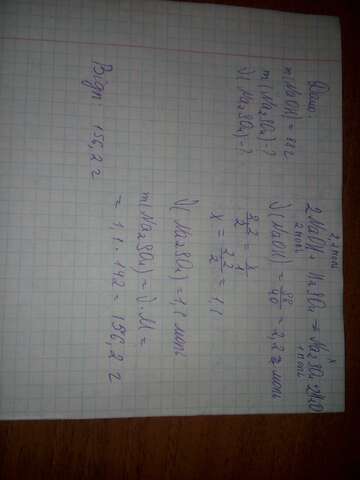 Дано:
m(NaOH) = 88 г
m(Na₂SO₄) - ?
ν(Na₂SO₄) - ?
2,2 моль x
2NaOH + H₂SO₄ → Na₂SO₄ + 2H₂O
2 моль 1 моль
ν(NaOH) = 88/40 = 2,2 моль
2,2/2 = x/1
x = 2,2/2 = 1,1
ν(Na₂SO₄) = 1,1 моль
m(Na₂SO₄) = ν · M =
= 1,1 · 142 = 156,2 г
Відп 156,2 г